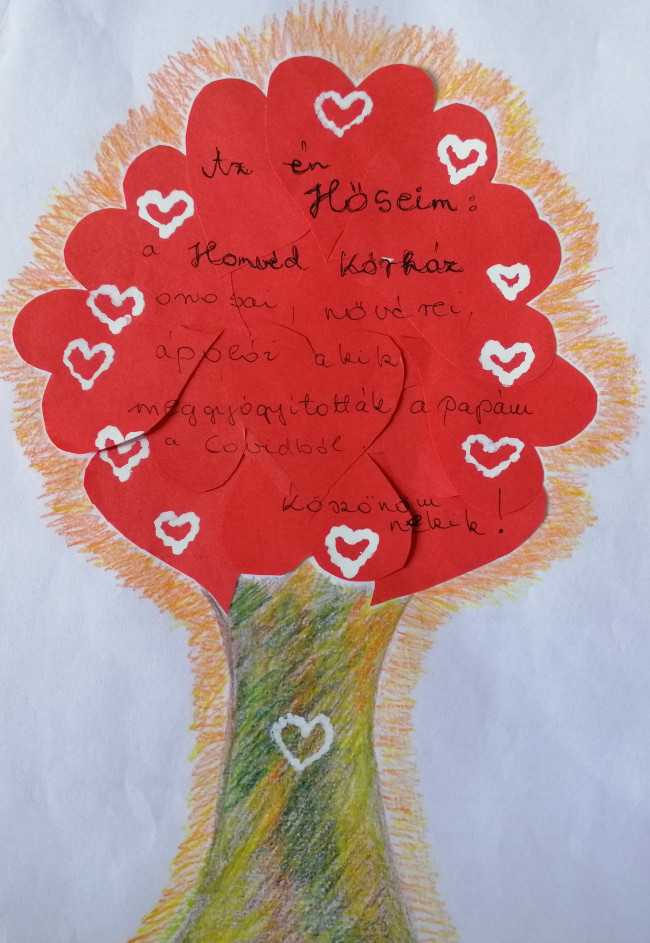 Az én
Hőseim:
a Honvéd Kórház
orvosai, nővérei,
ápolói akik
meggyógyították a papám
a Covidból
Köszönöm
nekik!